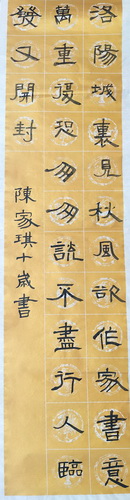 洛陽城裏見秋風欲作家書意
萬重復恐匆匆說不盡行人臨
發又開封
陳家琪十歲書